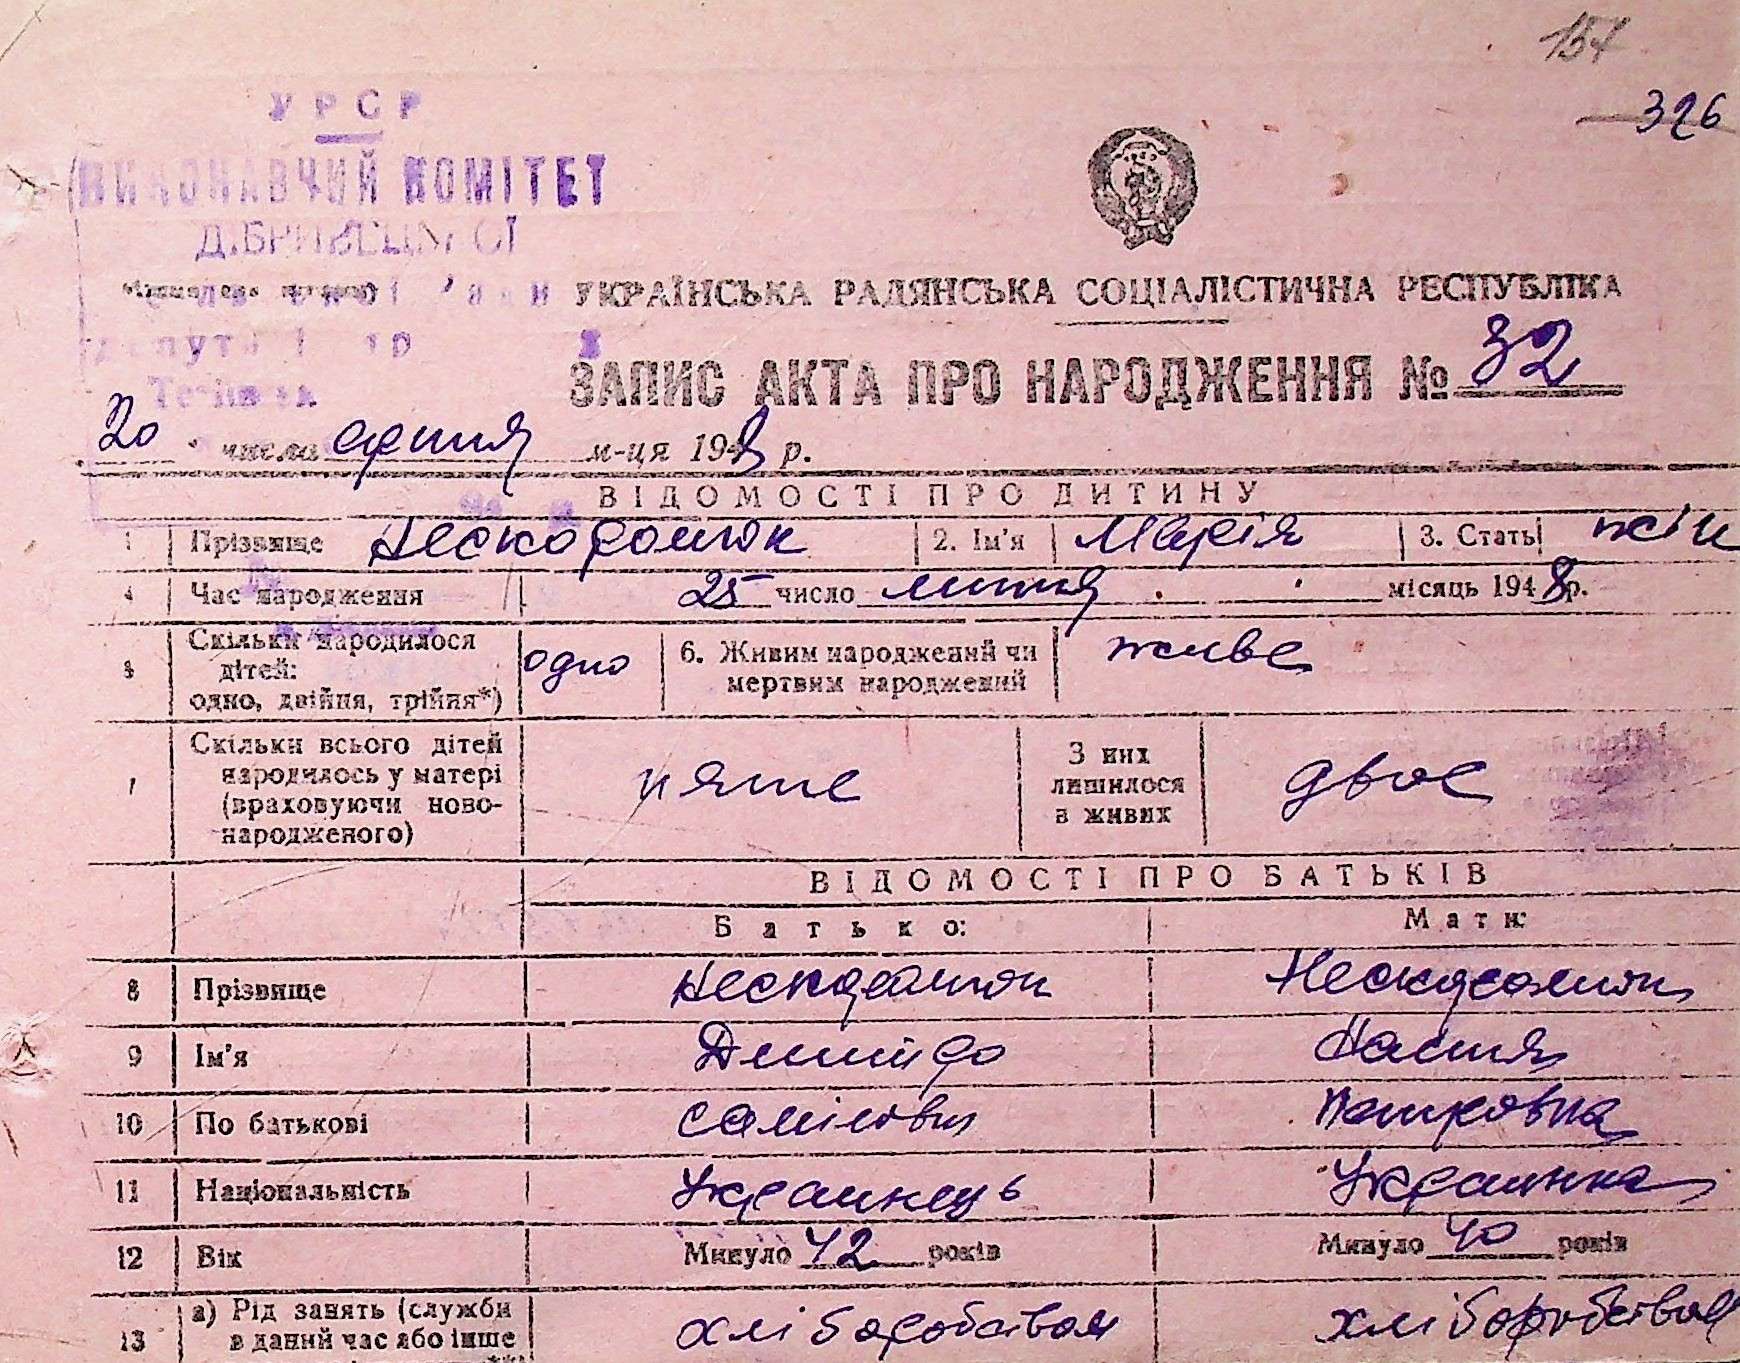 157
326
УРСР
ВИКОНАВЧИЙ КОМІТЕТ
УКРАЇНСЬКА РАДЯНСЬКА СОЦІАЛІСТИЧНА РЕСПУБЛІКА
ЗАПИС АКТА ПРО НАРОДЖЕННЯ № 32
20 числа серпня м-ця 1948 р.
ВІДОМОСТІ ПРО ДИТИНУ
1 Прізвище Нескоромнюк 2. Ім'я Марія 3. Стать жін
4 Час народження 25 число липня місяць 1948 р.
5 Скільки народилося дітей: одно, двійня, трійня*) одно 6. Живим народжений чи мертвим народжений живе
7 Скільки всього дітей народилось у матері (враховуючи новонародженого) пяте З них лишилося в живих двоє
ВІДОМОСТІ ПРО БАТЬКІВ
Батько: Мати:
8 Прізвище Нескоромнюк Нескоромнюк
9 Ім'я Демидо Настя
10 По батькові Самілович Петровна
11 Національність Украинець Украинка
12 Вік Минуло 42 років Минуло 40 років
13 а) Рід занять (служби в даний час або інше хліборобством хліборобством